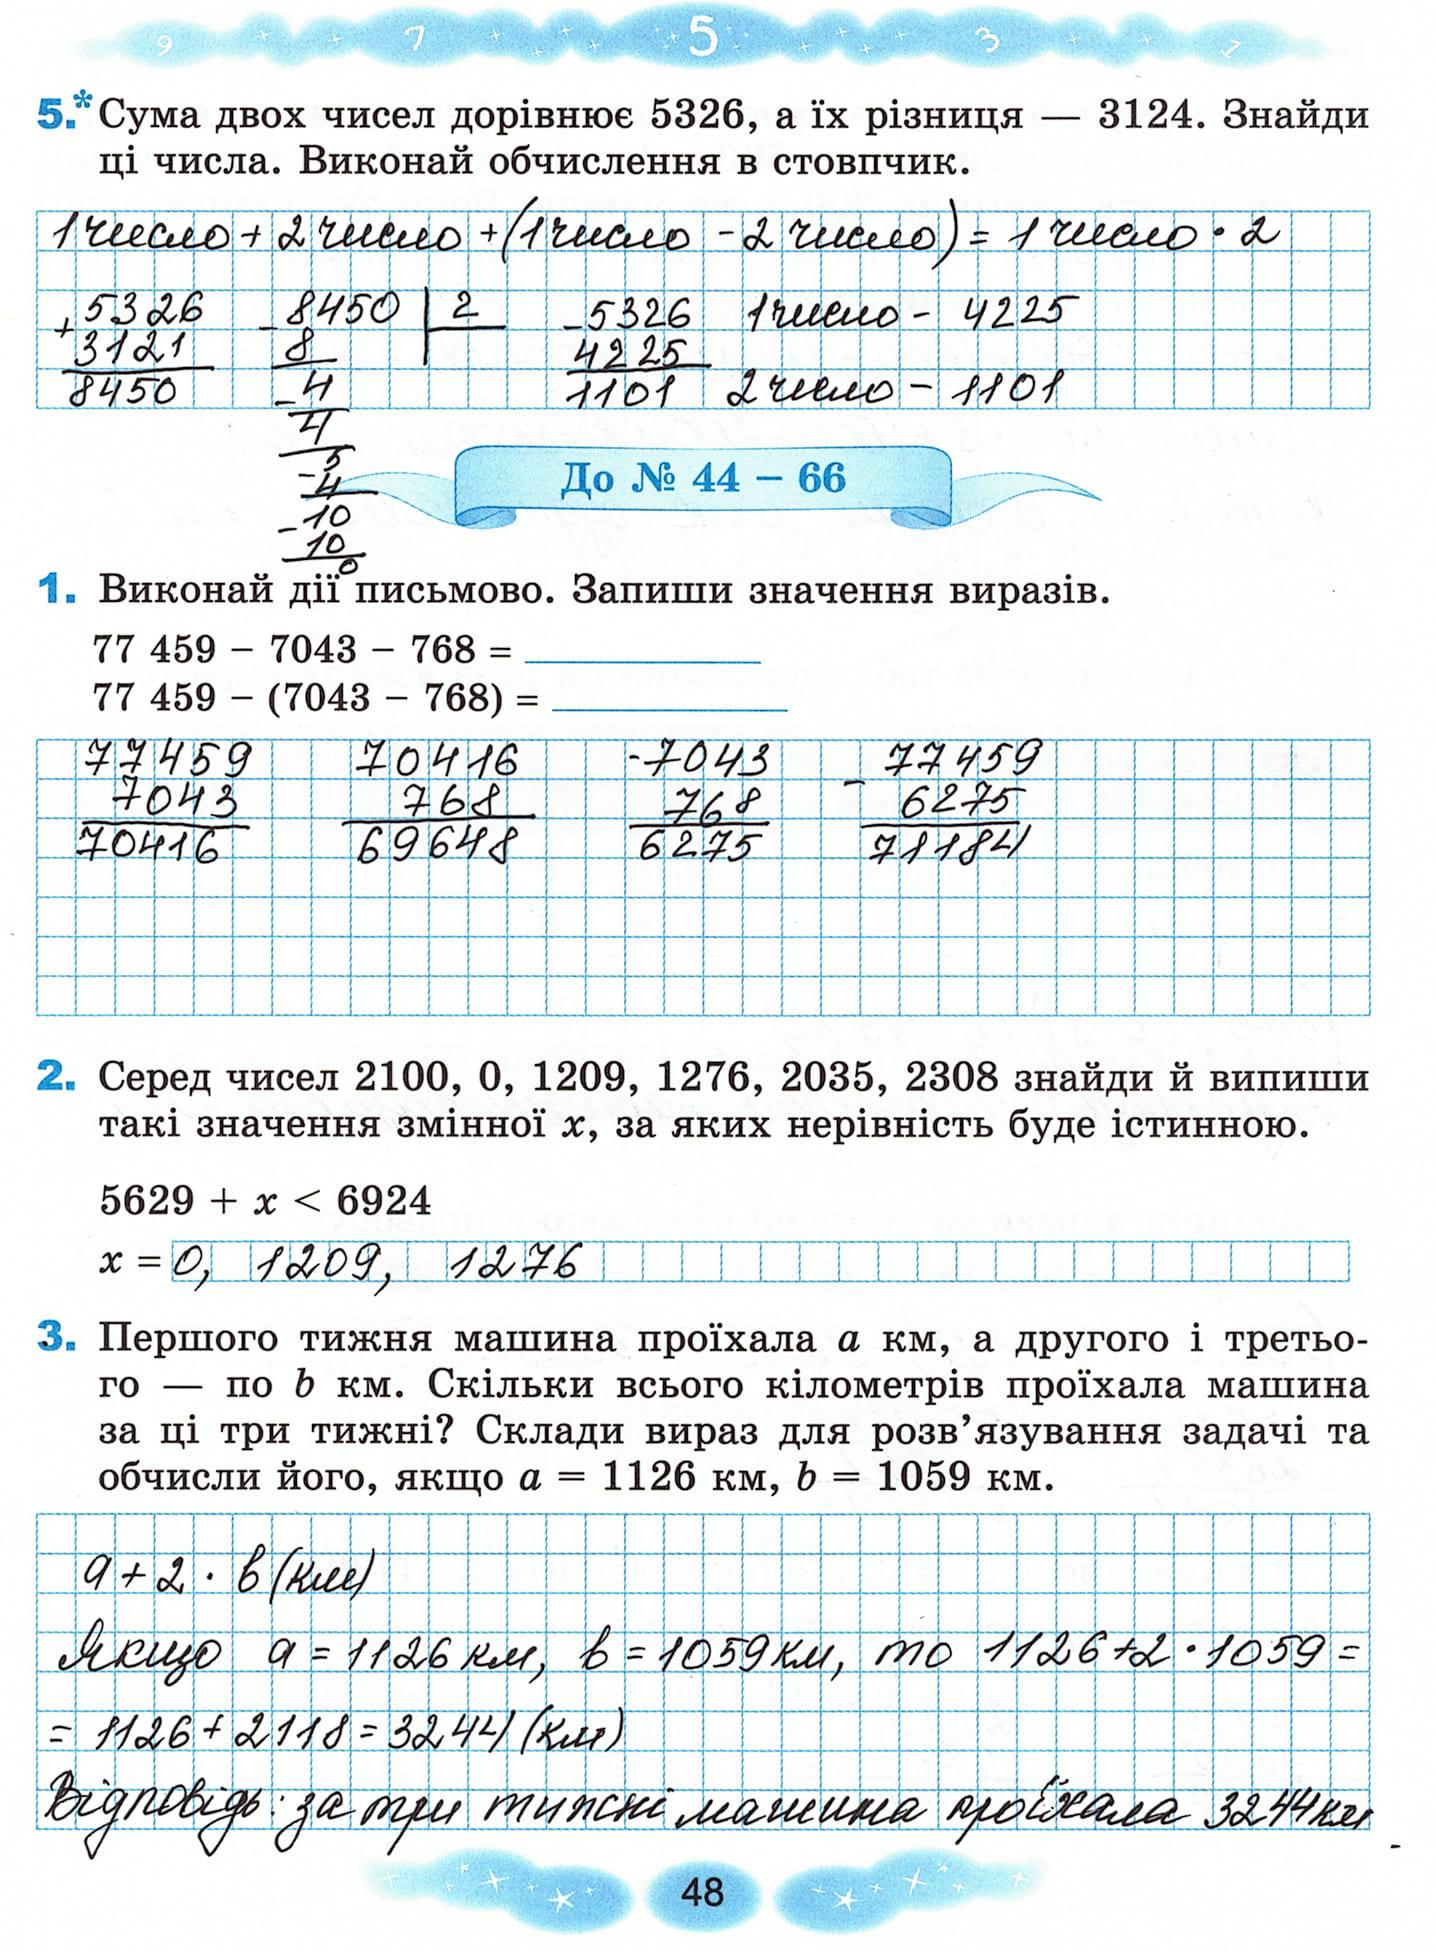 9 7 5 3 1
5.* Сума двох чисел дорівнює 5326, а їх різниця — 3124. Знайди
ці числа. Виконай обчислення в стовпчик.
1 число + 2 число + (1 число - 2 число) = 1 число · 2
+ 5326 - 8450 | 2 - 5326 1 число - 4225
3121 8 4225
8450 - 4 1101 2 число - 1101
4
- 5
4
- 10
10
0
До № 44 – 66
1. Виконай дії письмово. Запиши значення виразів.
77 459 – 7043 – 768 =
77 459 – (7043 – 768) =
77459 70416 - 7043 - 77459
7043 768 768 6275
70416 69648 6275 71184
2. Серед чисел 2100, 0, 1209, 1276, 2035, 2308 знайди й випиши
такі значення змінної x, за яких нерівність буде істинною.
5629 + x < 6924
x = 0, 1209, 1276
3. Першого тижня машина проїхала a км, а другого і третьо-
го — по b км. Скільки всього кілометрів проїхала машина
за ці три тижні? Склади вираз для розв’язування задачі та
обчисли його, якщо a = 1126 км, b = 1059 км.
a + 2 · в (км)
Якщо a = 1126 км, в = 1059 км, то 1126 + 2 · 1059 =
= 1126 + 2118 = 3244 (км)
Відповідь: за три тижні машина проїхала 3244 км
48